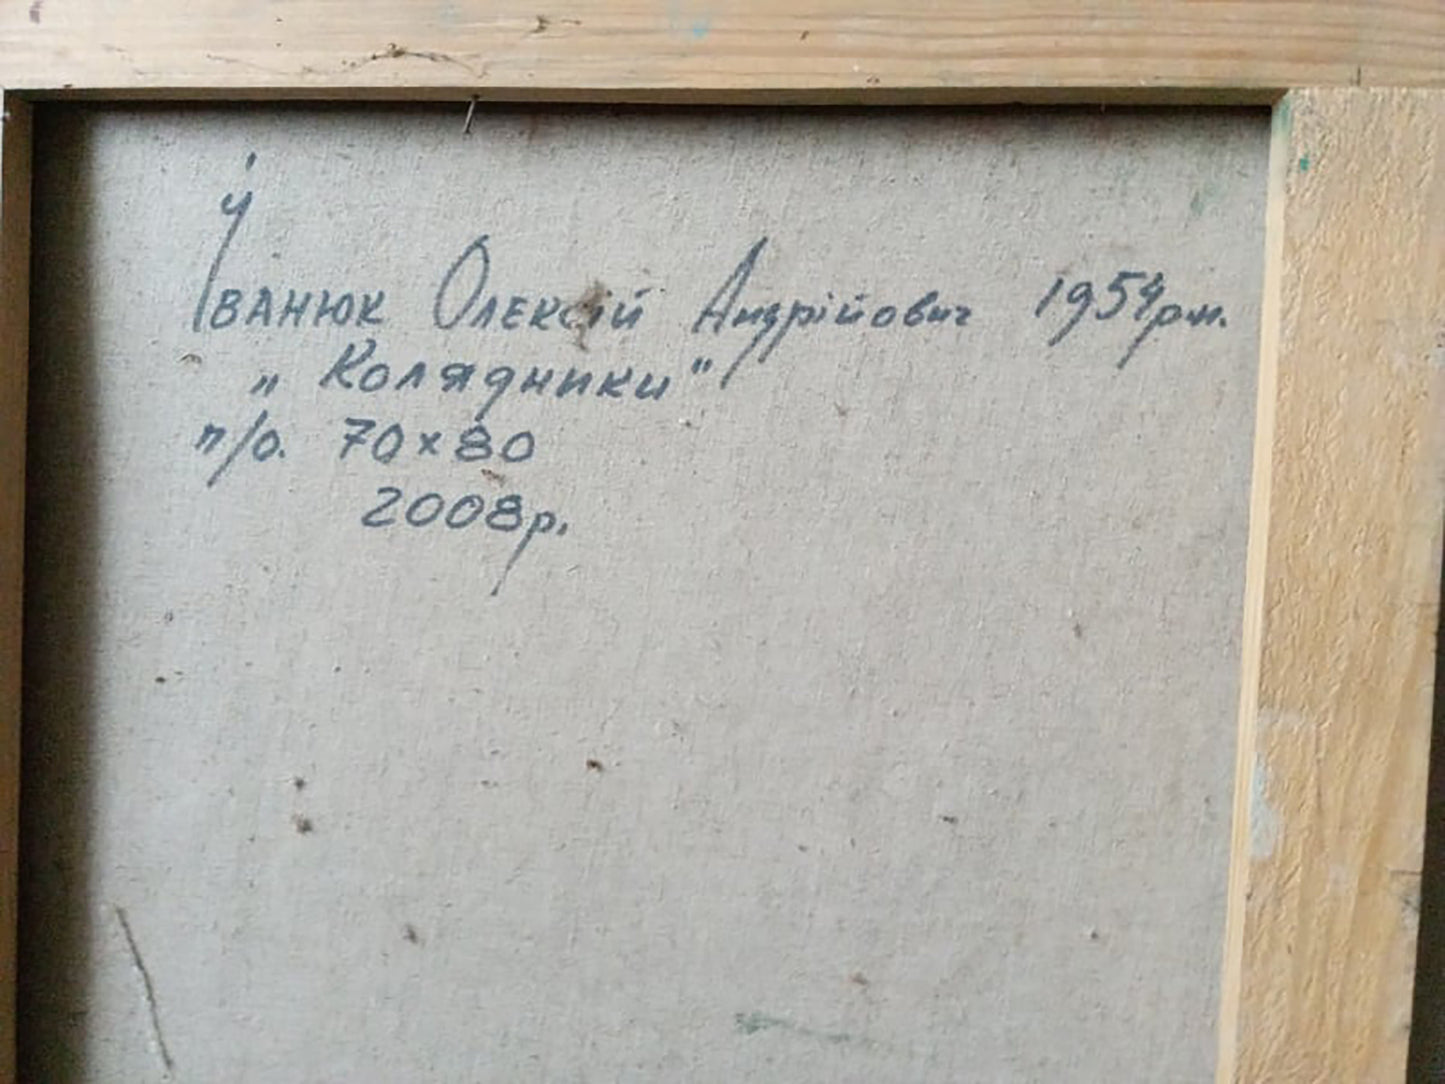 Іванюк Олексій Андрійович 1954р.н.
„Колядники"
п/о. 70×80
2008р.